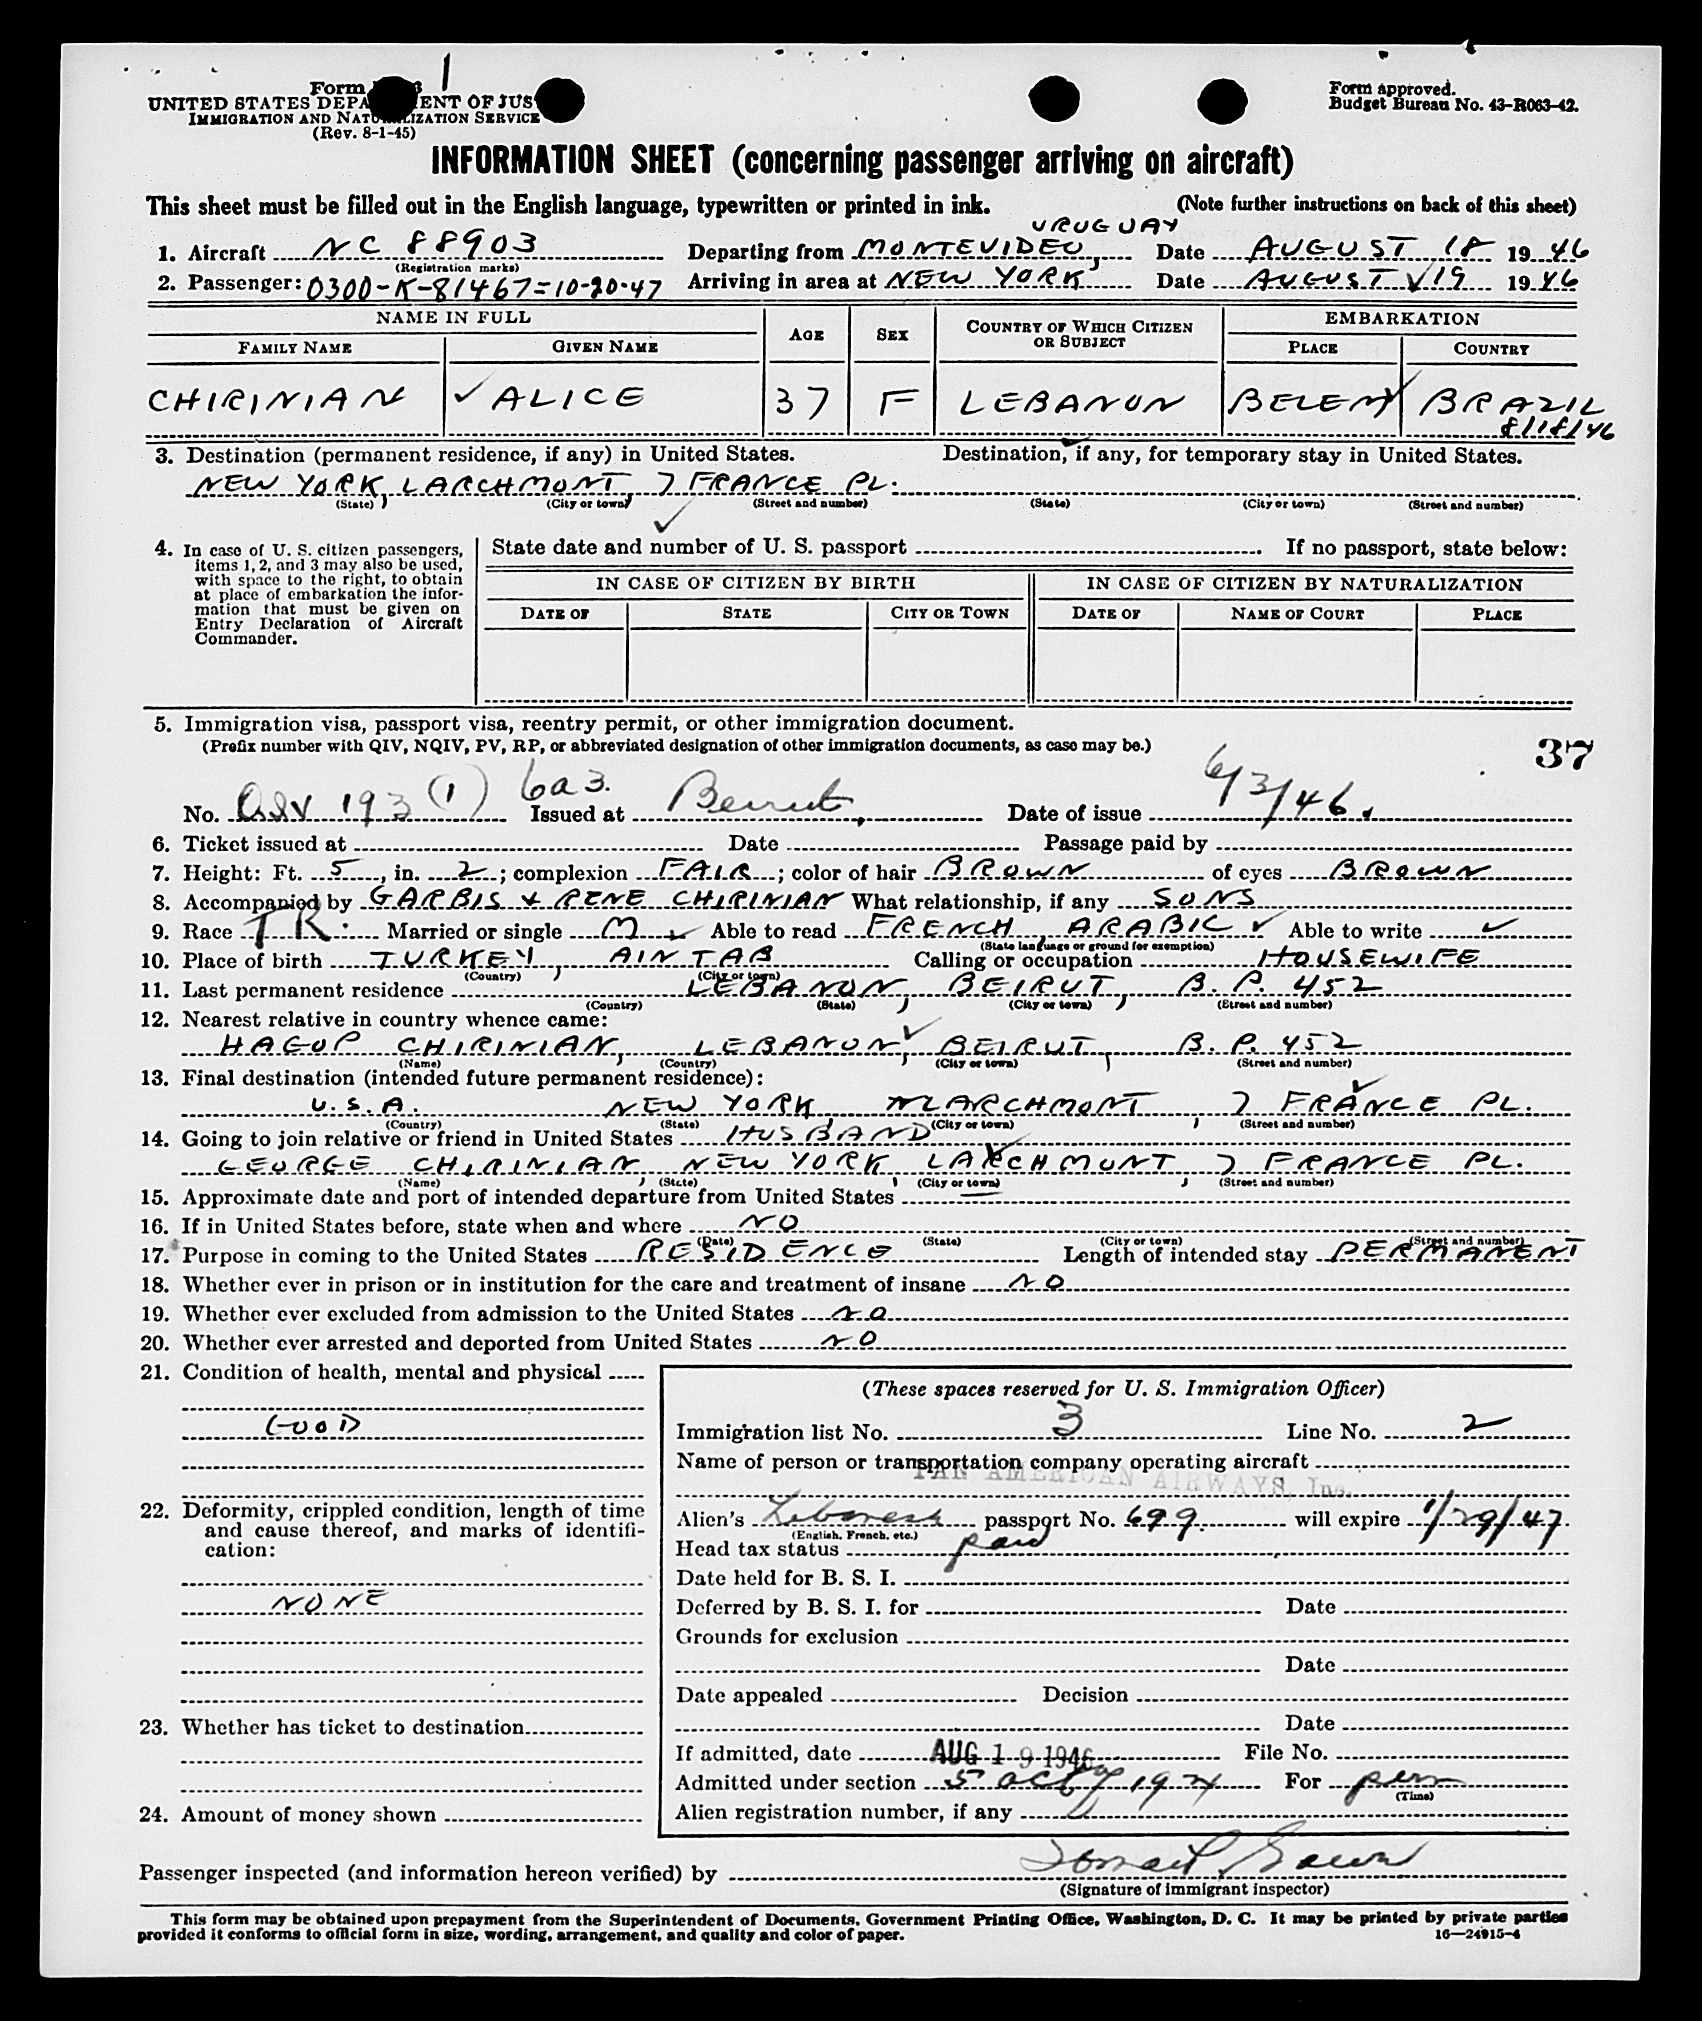 1
Form
UNITED STATES DEPA ENT OF JUS
IMMIGRATION AND NATURALIZATION SERVICE
(Rev. 8-1-45)
Form approved.
Budget Bureau No. 43-R063-42.
INFORMATION SHEET (concerning passenger arriving on aircraft)
This sheet must be filled out in the English language, typewritten or printed in ink. (Note further instructions on back of this sheet)
URUGUAY
1. Aircraft NC 88903 Departing from MONTEVIDEO, Date AUGUST 18 1946
(Registration marks)
2. Passenger: 0300-K-81467=10-20-47 Arriving in area at NEW YORK Date AUGUST 19 1946
NAME IN FULL AGE SEX COUNTRY OF WHICH CITIZEN OR SUBJECT EMBARKATION
FAMILY NAME GIVEN NAME PLACE COUNTRY
CHIRINIAN ✓ ALICE 37 F LEBANON BELEM BRAZIL
8/18/46
3. Destination (permanent residence, if any) in United States. Destination, if any, for temporary stay in United States.
NEW YORK, LARCHMONT, 7 FRANCE PL.
(State) (City or town) (Street and number) (State) (City or town) (Street and number)
4. In case of U. S. citizen passengers, items 1, 2, and 3 may also be used, with space to the right, to obtain at place of embarkation the information that must be given on Entry Declaration of Aircraft Commander.
State date and number of U. S. passport . If no passport, state below:
IN CASE OF CITIZEN BY BIRTH IN CASE OF CITIZEN BY NATURALIZATION
DATE OF STATE CITY OR TOWN DATE OF NAME OF COURT PLACE
5. Immigration visa, passport visa, reentry permit, or other immigration document.
(Prefix number with QIV, NQIV, PV, RP, or abbreviated designation of other immigration documents, as case may be.)
37
No. QIV 193 (1) 6a3. Issued at Beirut, Date of issue 6/3/46.
6. Ticket issued at Date Passage paid by
7. Height: Ft. 5, in. 2; complexion FAIR; color of hair BROWN of eyes BROWN
8. Accompanied by GARBIS & RENE CHIRINIAN What relationship, if any SONS
9. Race TR. Married or single M Able to read FRENCH, ARABIC ✓ Able to write ✓
(State language or ground for exemption)
10. Place of birth TURKEY, AINTAB Calling or occupation HOUSEWIFE
(Country) (City or town)
11. Last permanent residence LEBANON, BEIRUT, B. P. 452
(Country) (State) (City or town) (Street and number)
12. Nearest relative in country whence came:
HAGOP CHIRINIAN, LEBANON, BEIRUT, B. P. 452
(Name) (Country) (City or town) (Street and number)
13. Final destination (intended future permanent residence):
U.S.A. NEW YORK, LARCHMONT, 7 FRANCE PL.
(Country) (State) (City or town) (Street and number)
14. Going to join relative or friend in United States HUSBAND
GEORGE CHIRINIAN NEW YORK LARCHMONT 7 FRANCE PL.
(Name) (State) (City or town) (Street and number)
15. Approximate date and port of intended departure from United States —
16. If in United States before, state when and where NO
(Date) (State) (City or town) (Street and number)
17. Purpose in coming to the United States RESIDENCE Length of intended stay PERMANENT
18. Whether ever in prison or in institution for the care and treatment of insane NO
19. Whether ever excluded from admission to the United States NO
20. Whether ever arrested and deported from United States NO
21. Condition of health, mental and physical
GOOD
22. Deformity, crippled condition, length of time and cause thereof, and marks of identification:
NONE
23. Whether has ticket to destination
24. Amount of money shown
(These spaces reserved for U. S. Immigration Officer)
Immigration list No. 3 Line No. 2
Name of person or transportation company operating aircraft
PAN AMERICAN AIRWAYS, Inc.
Alien's Lebanese passport No. 699. will expire 1/29/47.
(English, French, etc.)
Head tax status paid
Date held for B. S. I.
Deferred by B. S. I. for Date
Grounds for exclusion
Date
Date appealed Decision
Date
If admitted, date AUG 19 1946 File No.
Admitted under section 5 act of 1924 For perm
(Time)
Alien registration number, if any
Passenger inspected (and information hereon verified) by
(Signature of immigrant inspector)
This form may be obtained upon prepayment from the Superintendent of Documents, Government Printing Office, Washington, D. C. It may be printed by private parties
provided it conforms to official form in size, wording, arrangement, and quality and color of paper. 16—24915-4